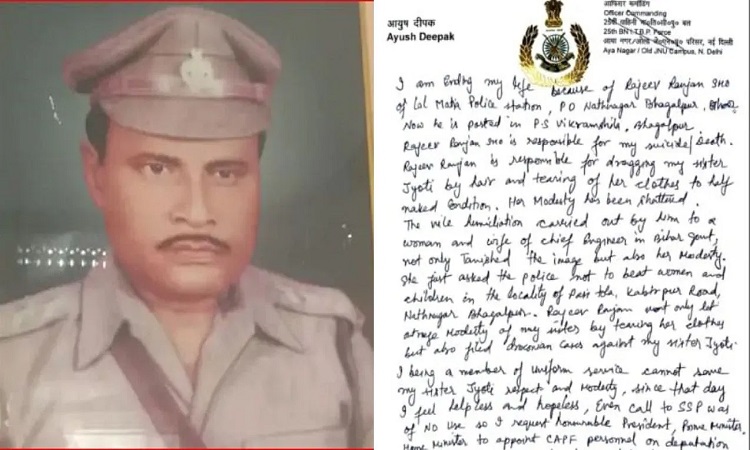 आयुष दीपक
Ayush Deepak
Officer Commanding
25th BN I.T.B.P. Force
Aya Nagar / Old JNU Campus, N. Delhi
I am Ending my life because of Rajeev Ranjan SHO
of Lal Matia Police station, PO Nathnagar Bhagalpur,
Now he is posted in P.S Vikramshila, Bhagalpur
Rajeev Ranjan SHO is responsible for my suicide/Death.
Rajeev Ranjan is responsible for dragging my sister
Jyoti by hair and tearing of her clothes to half
naked Condition. Her Modesty has been shattered.
The vile humiliation carried out by him to a
woman and wife of chief Engineer in Bihar Govt,
not only Tarnished the image but also her Modesty.
She just asked the police not to beat women and
children in the locality of Pasi tola, Kabirpur Road,
Nathnagar Bhagalpur. Rajeev Ranjan not only
outrage Modesty of my sister by tearing her clothes
but also filed draconian cases against my sister Jyoti.
I being a member of uniform service cannot save
my sister Jyoti respect and Modesty, since that day
I feel helpless and hopeless, Even call to SSP was
of No use so I request honourable President, Prime Minister,
Home Minister to appoint CAPF personnel on deputation